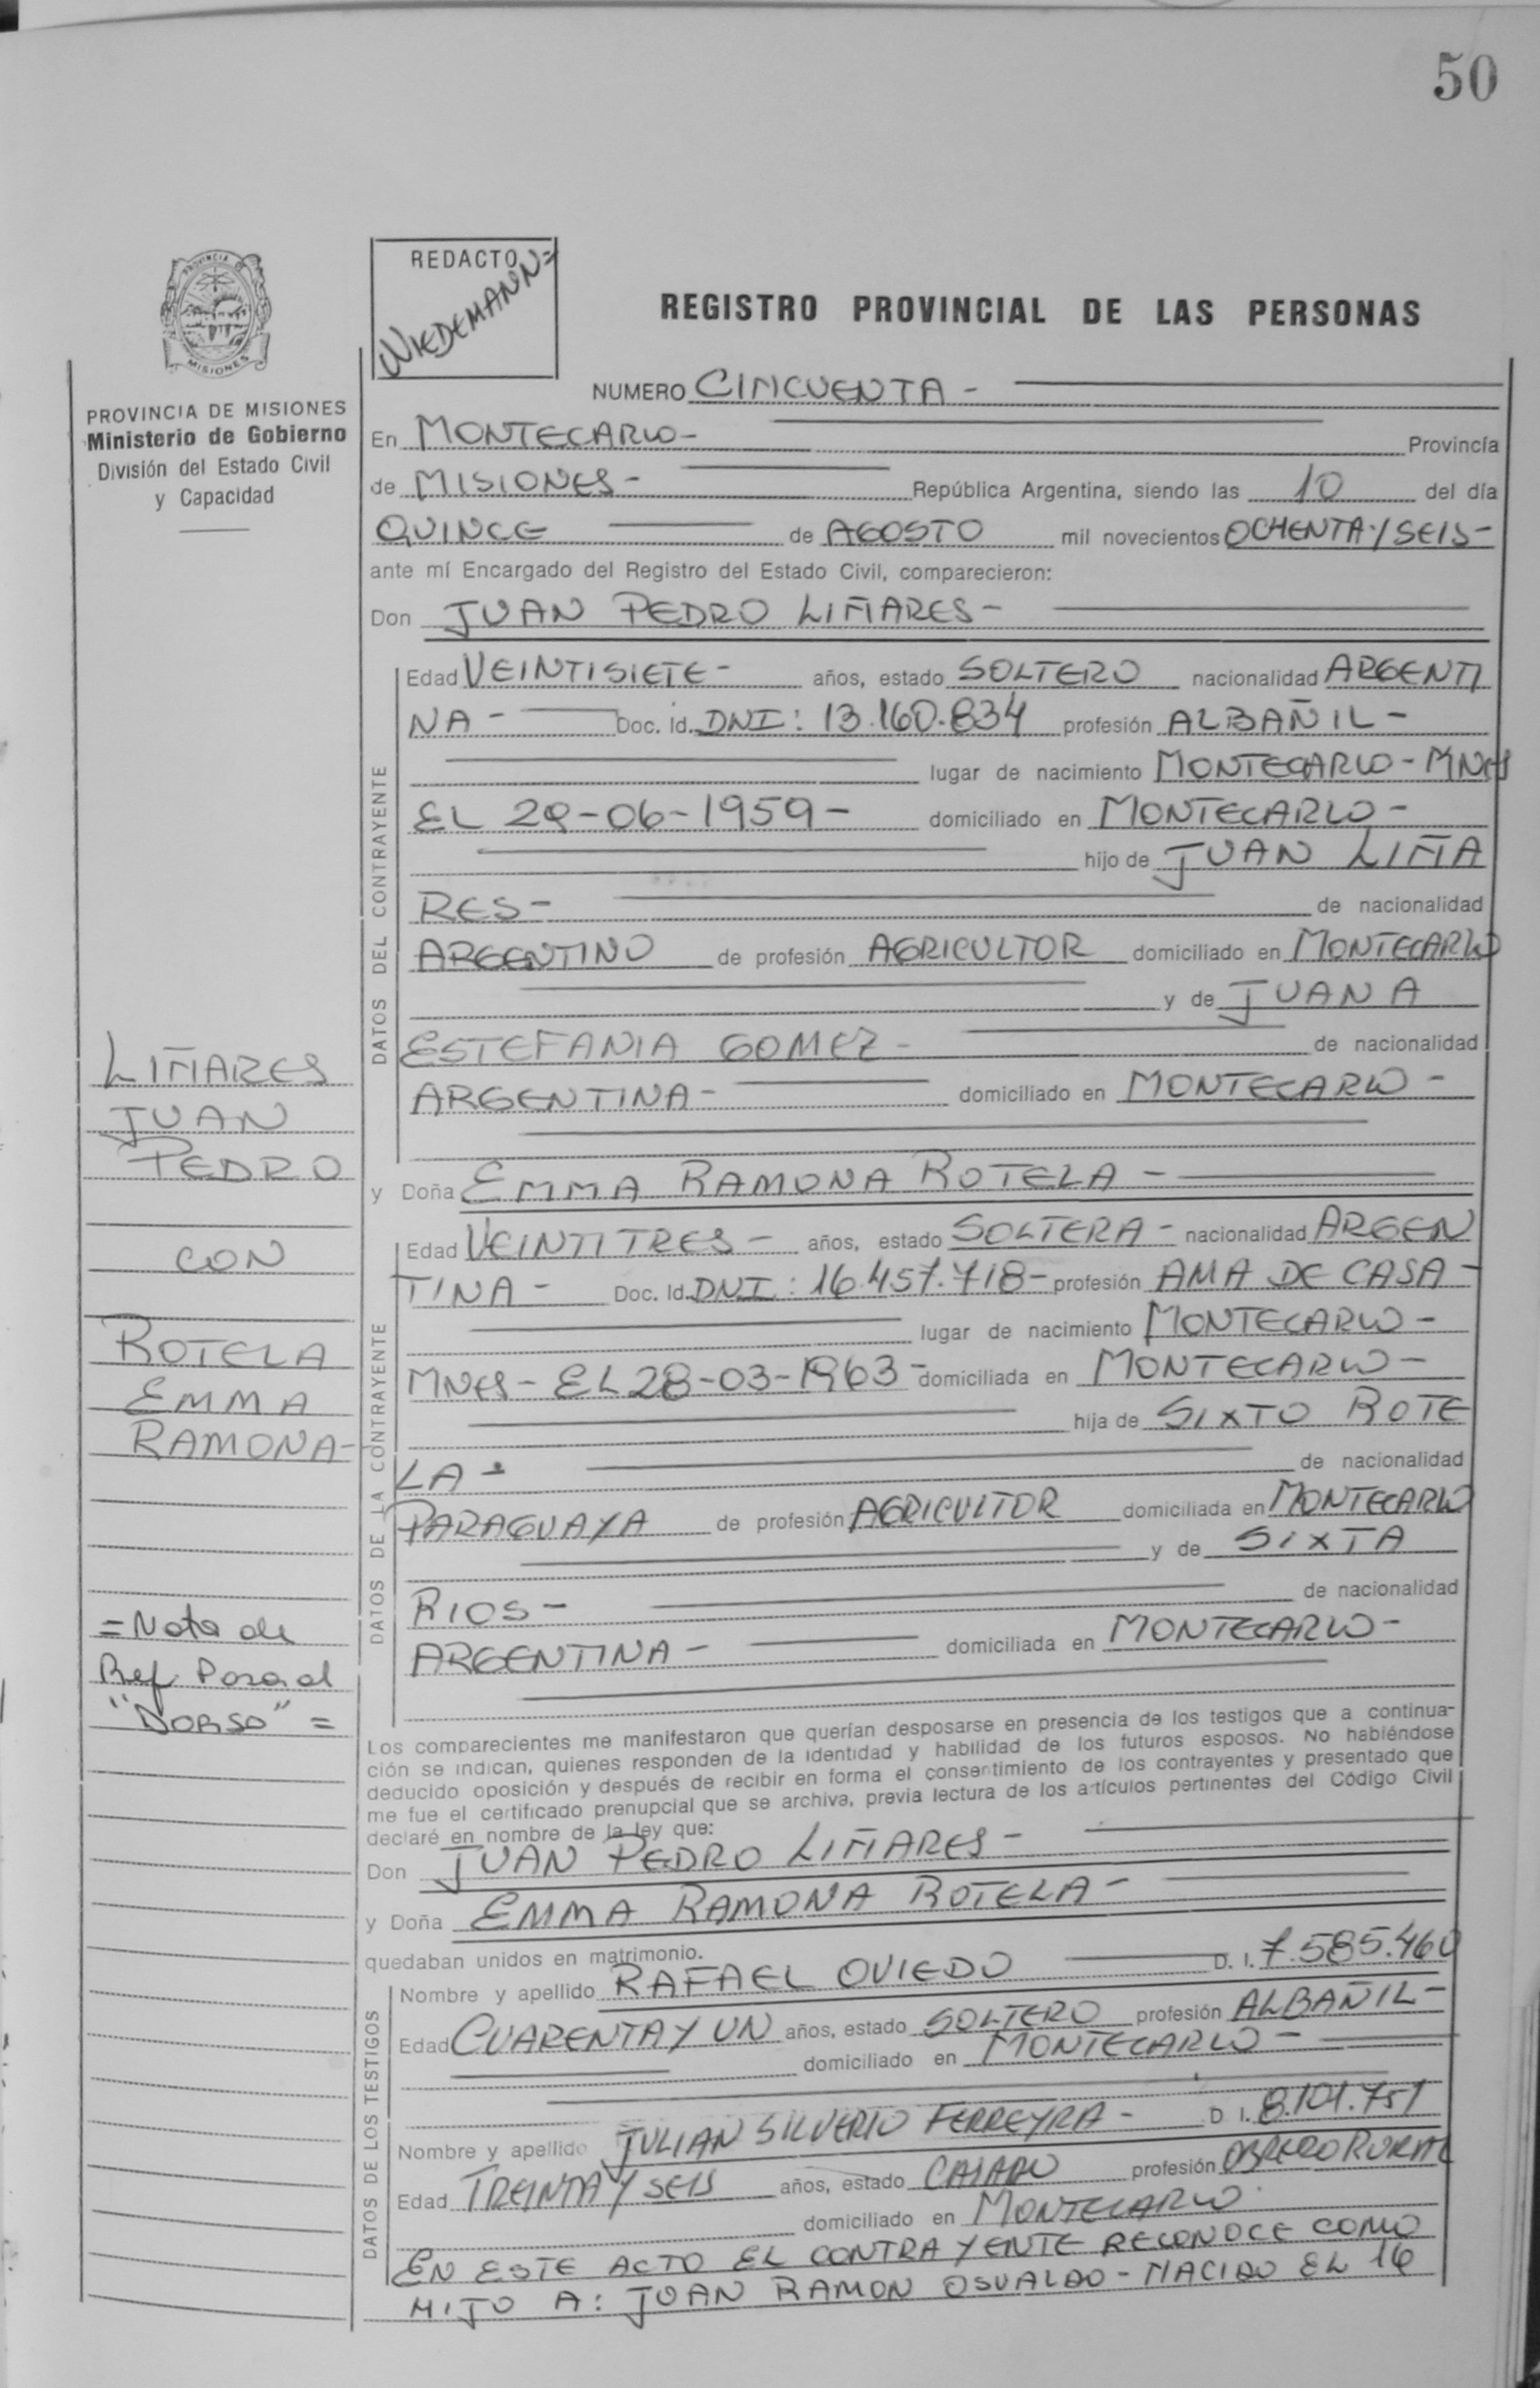 50
PROVINCIA
MISIONES
PROVINCIA DE MISIONES
Ministerio de Gobierno
División del Estado Civil
y Capacidad
REDACTO
WIEDEMANN=
REGISTRO PROVINCIAL DE LAS PERSONAS
NUMERO CINCUENTA -
En MONTECARLO - Provincia
de MISIONES - República Argentina, siendo las 10 del día
QUINCE de AGOSTO mil novecientos OCHENTA Y SEIS -
ante mí Encargado del Registro del Estado Civil, comparecieron:
Don JUAN PEDRO LIÑARES -
DATOS DEL CONTRAYENTE
Edad VEINTISIETE - años, estado SOLTERO nacionalidad ARGENTI
NA - Doc. Id. DNI: 13.160.834 profesión ALBAÑIL -
lugar de nacimiento MONTECARLO - MNES
EL 29-06-1959 - domiciliado en MONTECARLO -
hijo de JUAN LIÑA
RES - de nacionalidad
ARGENTINO de profesión AGRICULTOR domiciliado en MONTECARLO
y de JUANA
ESTEFANIA GOMEZ - de nacionalidad
ARGENTINA - domiciliado en MONTECARLO -
y Doña EMMA RAMONA ROTELA -
DATOS DE LA CONTRAYENTE
Edad VEINTITRES - años, estado SOLTERA - nacionalidad ARGEN
TINA - Doc. Id. DNI: 16.457.718 - profesión AMA DE CASA -
lugar de nacimiento MONTECARLO -
MNES - EL 28-03-1963 - domiciliada en MONTECARLO -
hija de SIXTO ROTE
LA - de nacionalidad
PARAGUAYA de profesión AGRICULTOR domiciliada en MONTECARLO
y de SIXTA
RIOS - de nacionalidad
ARGENTINA - domiciliada en MONTECARLO -
LIÑARES
JUAN
PEDRO
CON
ROTELA
EMMA
RAMONA -
= Nota de
Ref Pasa al
"DORSO" =
Los comparecientes me manifestaron que querían desposarse en presencia de los testigos que a continua-
ción se indican, quienes responden de la identidad y habilidad de los futuros esposos. No habiéndose
deducido oposición y después de recibir en forma el consentimiento de los contrayentes y presentado que
me fue el certificado prenupcial que se archiva, previa lectura de los artículos pertinentes del Código Civil
declaré en nombre de la ley que:
Don JUAN PEDRO LIÑARES -
y Doña EMMA RAMONA ROTELA -
quedaban unidos en matrimonio.
DATOS DE LOS TESTIGOS
Nombre y apellido RAFAEL OVIEDO D. I. 7.585.460
Edad CUARENTA Y UN años, estado SOLTERO profesión ALBAÑIL -
domiciliado en MONTECARLO -
Nombre y apellido JULIAN SILVERIO FERREYRA - D. I. 8.101.751
Edad TREINTA Y SEIS años, estado CASADO profesión OBRERO RURAL
domiciliado en MONTECARLO
EN ESTE ACTO EL CONTRAYENTE RECONOCE COMO
HIJO A: JUAN RAMON OSVALDO - NACIDO EL 16